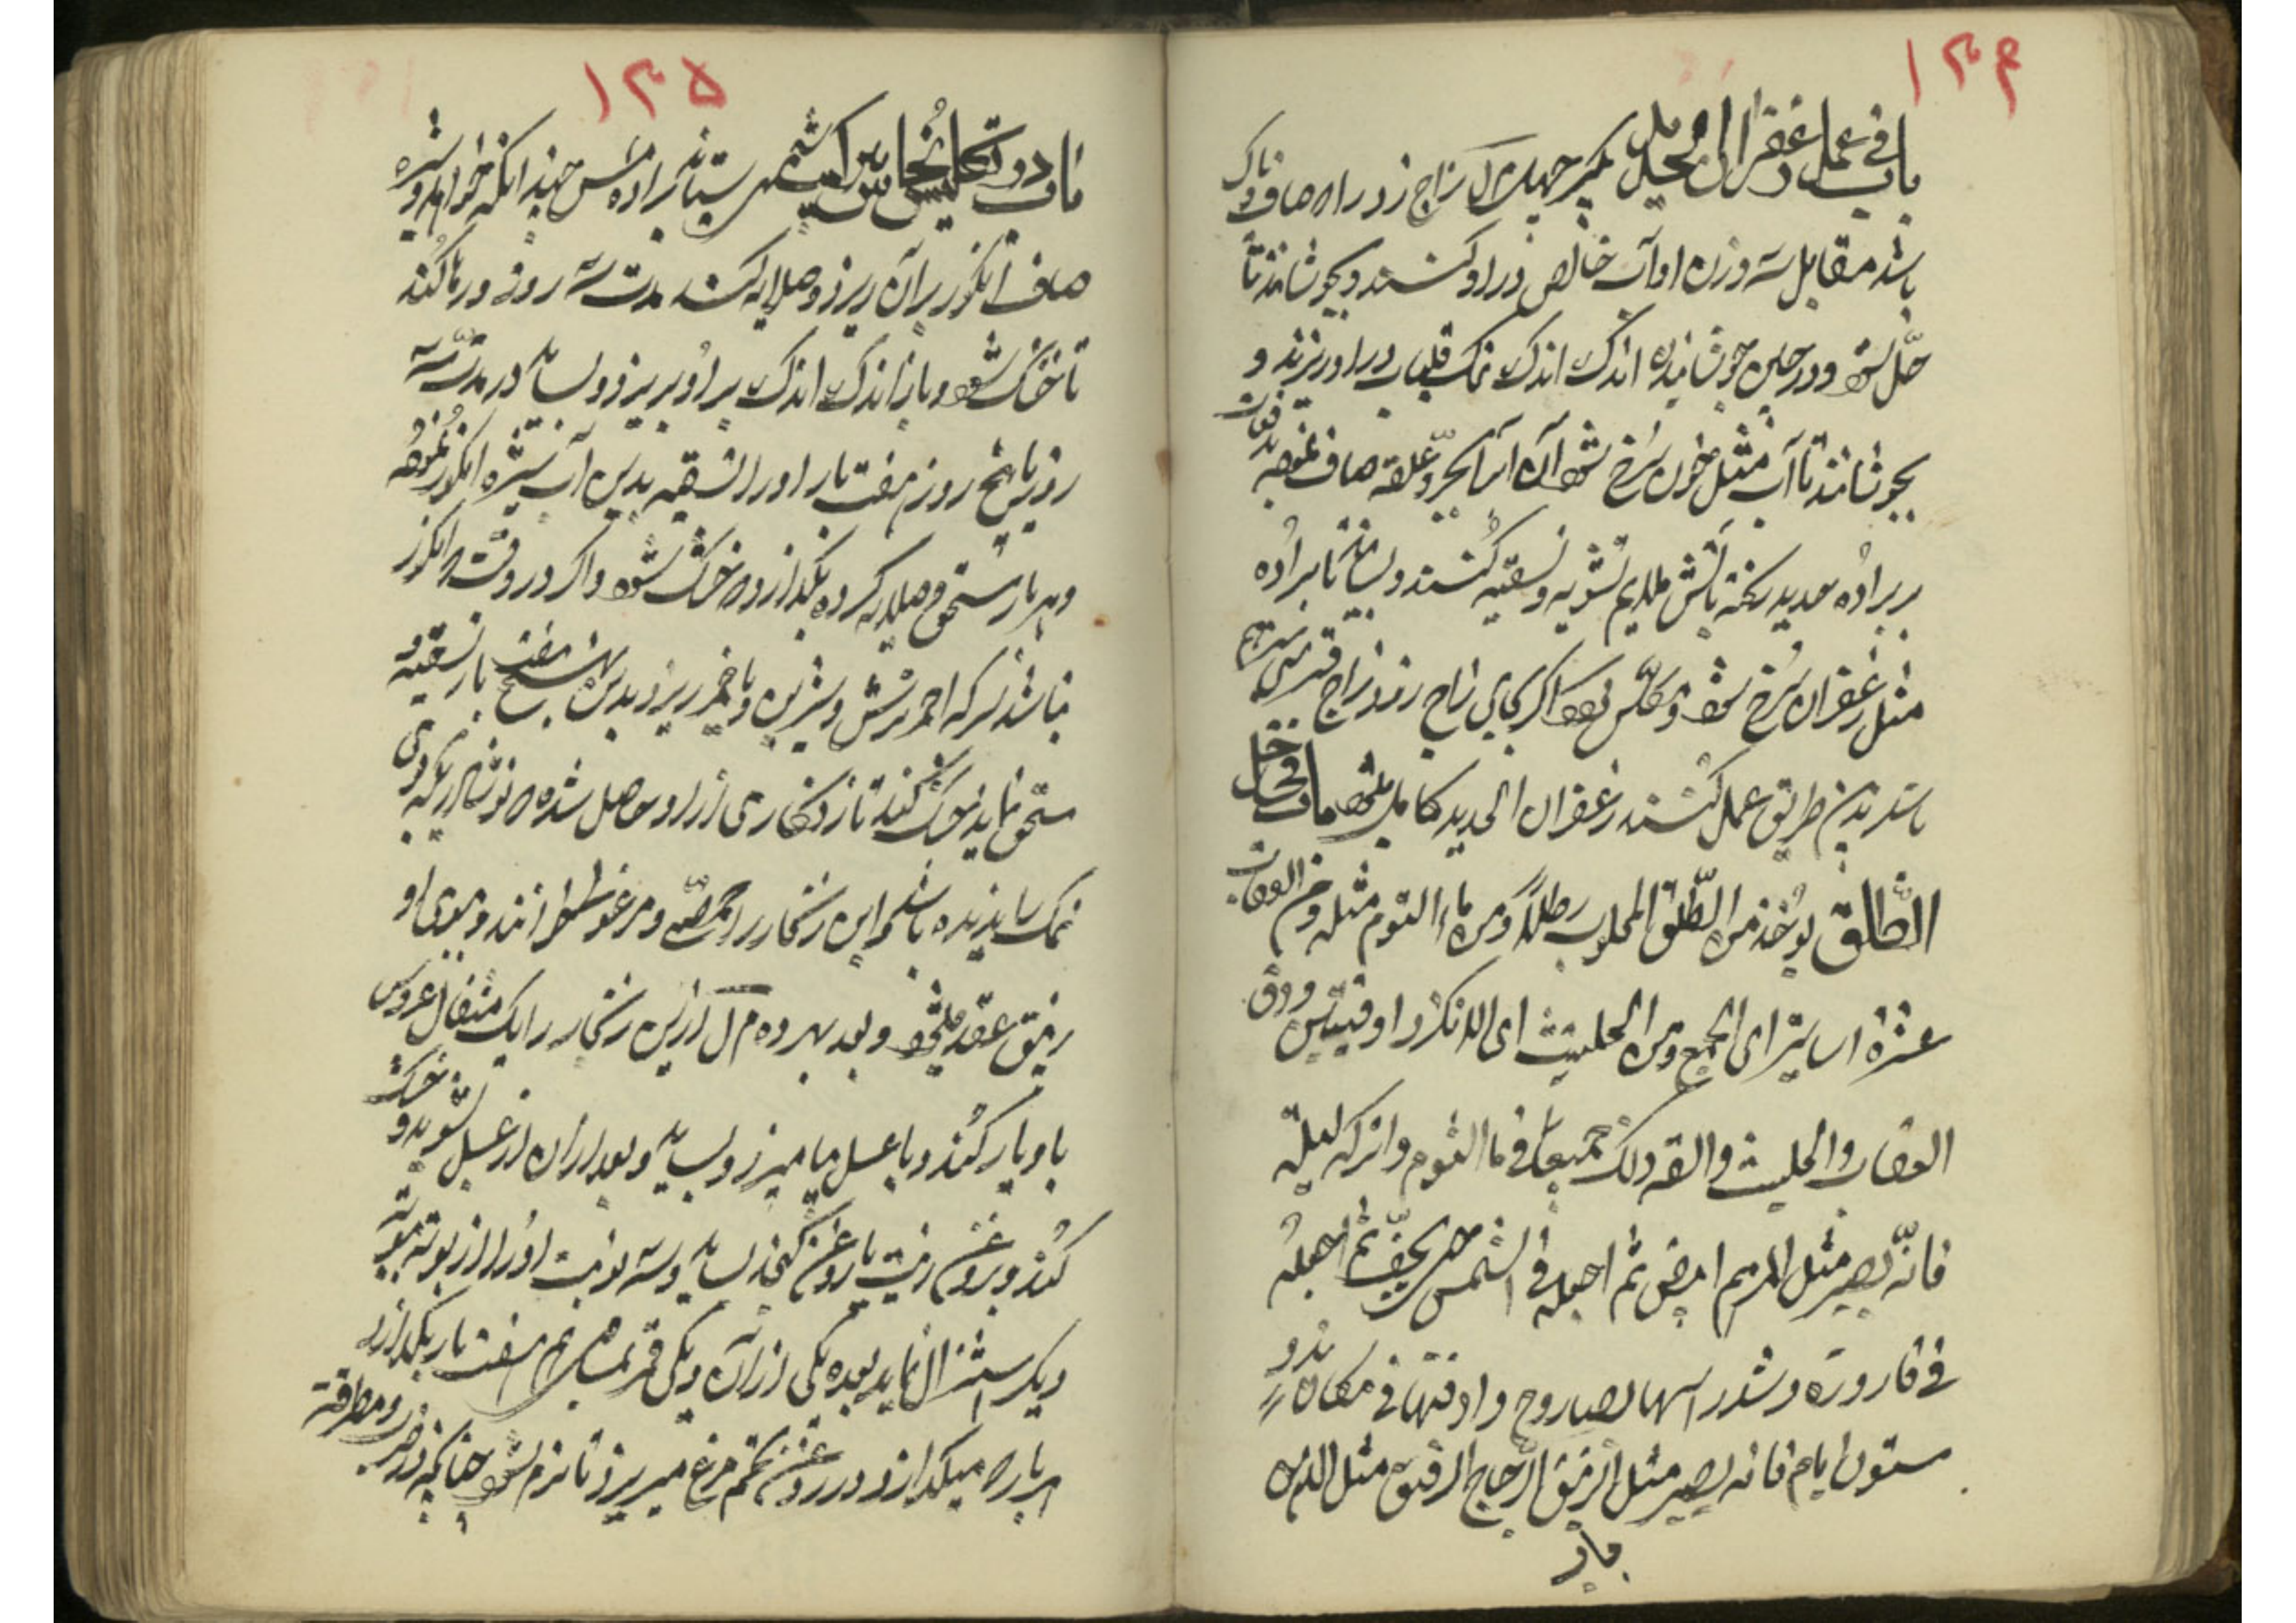 ۱۳۴
باب فی عمل زعفران الحدید بگیر جهار یک زاج زرد راه صاف و پاک
باشد مقابل سه وزن او آب خالص در او کنند و بجوشانند تا
حل شود و در حین جوشانیدن اندک اندک نمک قلیاب در او ریزند و
بجوشانند تا آب مثل خون سرخ شود آن صاف نموده بدفعات
بر براده حدید ریخته باتش ملایم تشویه و تسقیه کنند و بسایند تا براده
مثل زعفران سرخ شود و مکلس بود اکر بجای زاج زرد زاج قبرسی
باشد بدین طریق عمل کنند زعفران الحدید کامل شود باب فی حل
الطلق یوخذ من الطلق المحلوب رطلا ومن ماء الثوم مثله ومن العقاب
عشرة اساتیر ای الجمیع ومن الحلتیت ای الانکزد اوقیتین ودق
العقاب والحلتیت والقه ذلک جمیعا فی ماء الثوم واترکه لیلة
فانه یصیر مثل المرهم ابیض ثم اجعله فی الشمس حتی یجف ثم اجعله
فی قارورة وشد راسها بصاروج وادفنها فی مکان ندو
ستون ایام فانه یصیر مثل الزیبق الزجاج الرقیق مثل الدهن
باب
۱۳۵
باب دو تکلیس نحاس بستاند براده مس چندانکه خواهد و شیره
صاف انکور بر آن ریزد و صلایه کند مدت سه روز و رها کند
تا خشک شود و باز اندک اندک بر او بریزد و بساید در مدت سه
روز یا پنج روز هفت بار او را تسقیه بدین آب شیره انکور نموده
و هر بار سحق و صلایه کرده بگذارد که خشک شود و اکر در وقت انکور
نباشد سرکه احمر ترش و شیرین و یا خمر ریزد بدین نسخ هفت بار تسقیه و
سحق نماید و خشک کند تا زنکاری از او حاصل شده که نوشادر یکروی
نمک سابیده باشد و این زنکار را حمصی و مرغوطا خوانند و بوی او
زیبق عقد میشود و بعد بهر ده م ل ازین زنکار را یک مثقال عروس
با او یار کنند و با عسل بیامیزد و بساید و بعد از آن از عسل بشوید و خشک
کند و بروغن زیت یا روغن کنجد بساید و سه نوبت او را از بوته ببوته
دیکر استنزال نماید بعده یکی از آن و یکی قمر بهم هفت بار بگدازد
هر باره میکدازد و در روغن تخم مرغ میریزد تا نرم شود چنانکه در ضرب و مطرقه